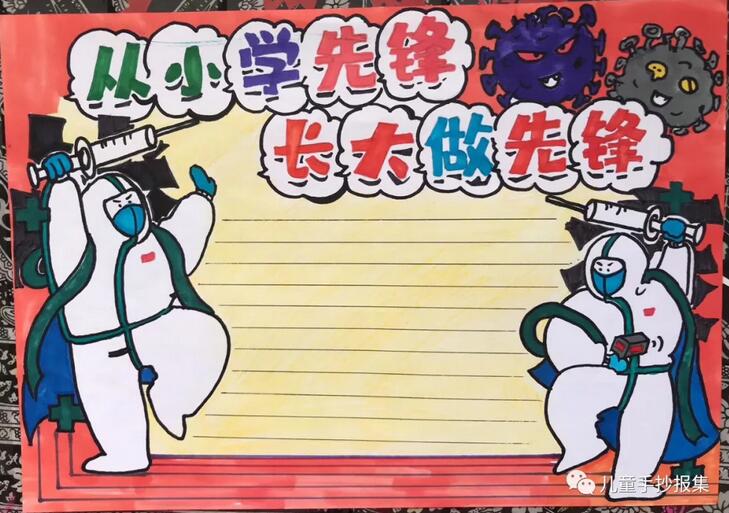 从小学先锋
长大做先锋
儿童手抄报集